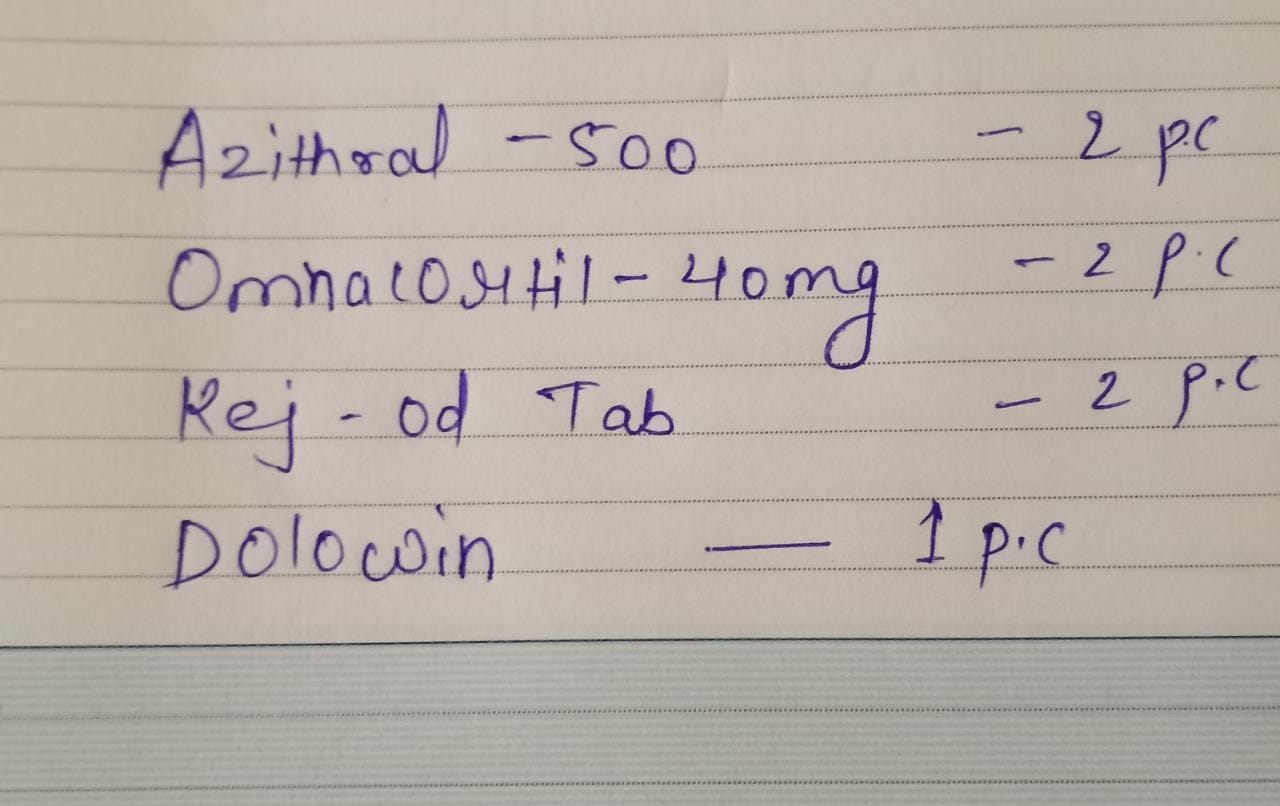 Azithral - 500 - 2 p.c
Omnacortil - 40mg - 2 p.c
Rej - od Tab - 2 p.c
Dolowin — 1 p.c